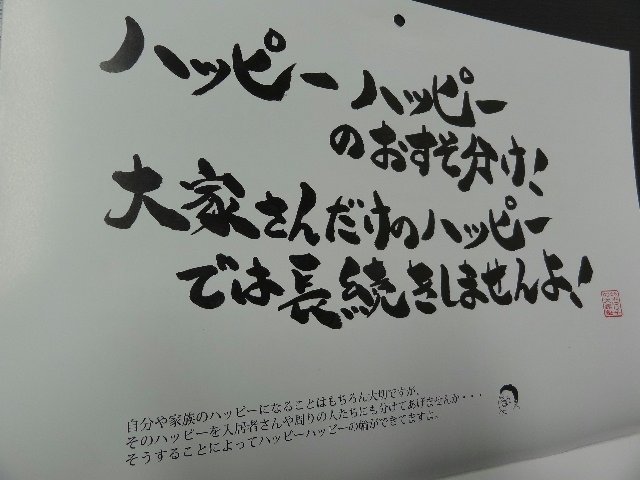 ハッピーハッピー
のおすそ分け!
大家さんだけのハッピー
では長続きしませんよ!
自分や家族のハッピーになることはもちろん大切ですが、
そのハッピーを入居者さんや周りの人たちにも分けてあげませんか・・・
そうすることによってハッピーハッピーの輪ができてますよ。